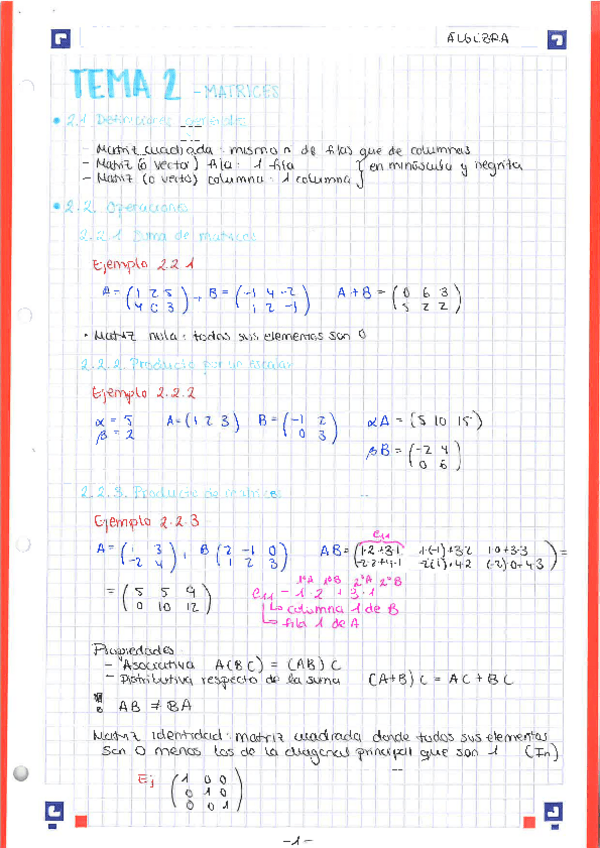 ÁLGEBRA
TEMA 2 - MATRICES
• 2.1 Definiciones generales
- Matriz cuadrada: mismo n de filas que de columnas
- Matriz (o vector) fila: 1 fila
- Matriz (o vector) columna: 1 columna } en minúscula y negrita
• 2.2. Operaciones
2.2.1 Suma de matrices
Ejemplo 2.2.1
A = (1 2 5) , B = (-1 4 -2) A + B = (0 6 3)
(4 0 3) (1 2 -1) (5 2 2)
• Matriz nula: todos sus elementos son 0
2.2.2. Producto por un escalar
Ejemplo 2.2.2
α = 5 A = (1 2 3) B = (-1 2) αA = (5 10 15)
β = 2 (0 3)
βB = (-2 4)
(0 6)
2.2.3. Producto de matrices
Ejemplo 2.2.3
e11
A = (1 3) , B (2 -1 0) AB = (1·2+3·1 1·(-1)+3·2 1·0+3·3) =
(-2 4) (1 2 3) (-2·2+4·1 -2(-1)+4·2 (-2)·0+4·3)
= (5 5 9) 1ºA 1ºB 2ºA 2ºB
(0 10 12) e11 = 1·2 + 3·1
↳ columna 1 de B
↳ fila 1 de A
Propiedades
- Asociativa A(BC) = (AB)C
- Distributiva respecto de la suma (A+B)C = AC + BC
AB ≠ BA
Matriz identidad: matriz cuadrada donde todos sus elementos
son 0 menos los de la diagonal principal que son 1 (In)
Ej (1 0 0)
(0 1 0)
(0 0 1)
-1-